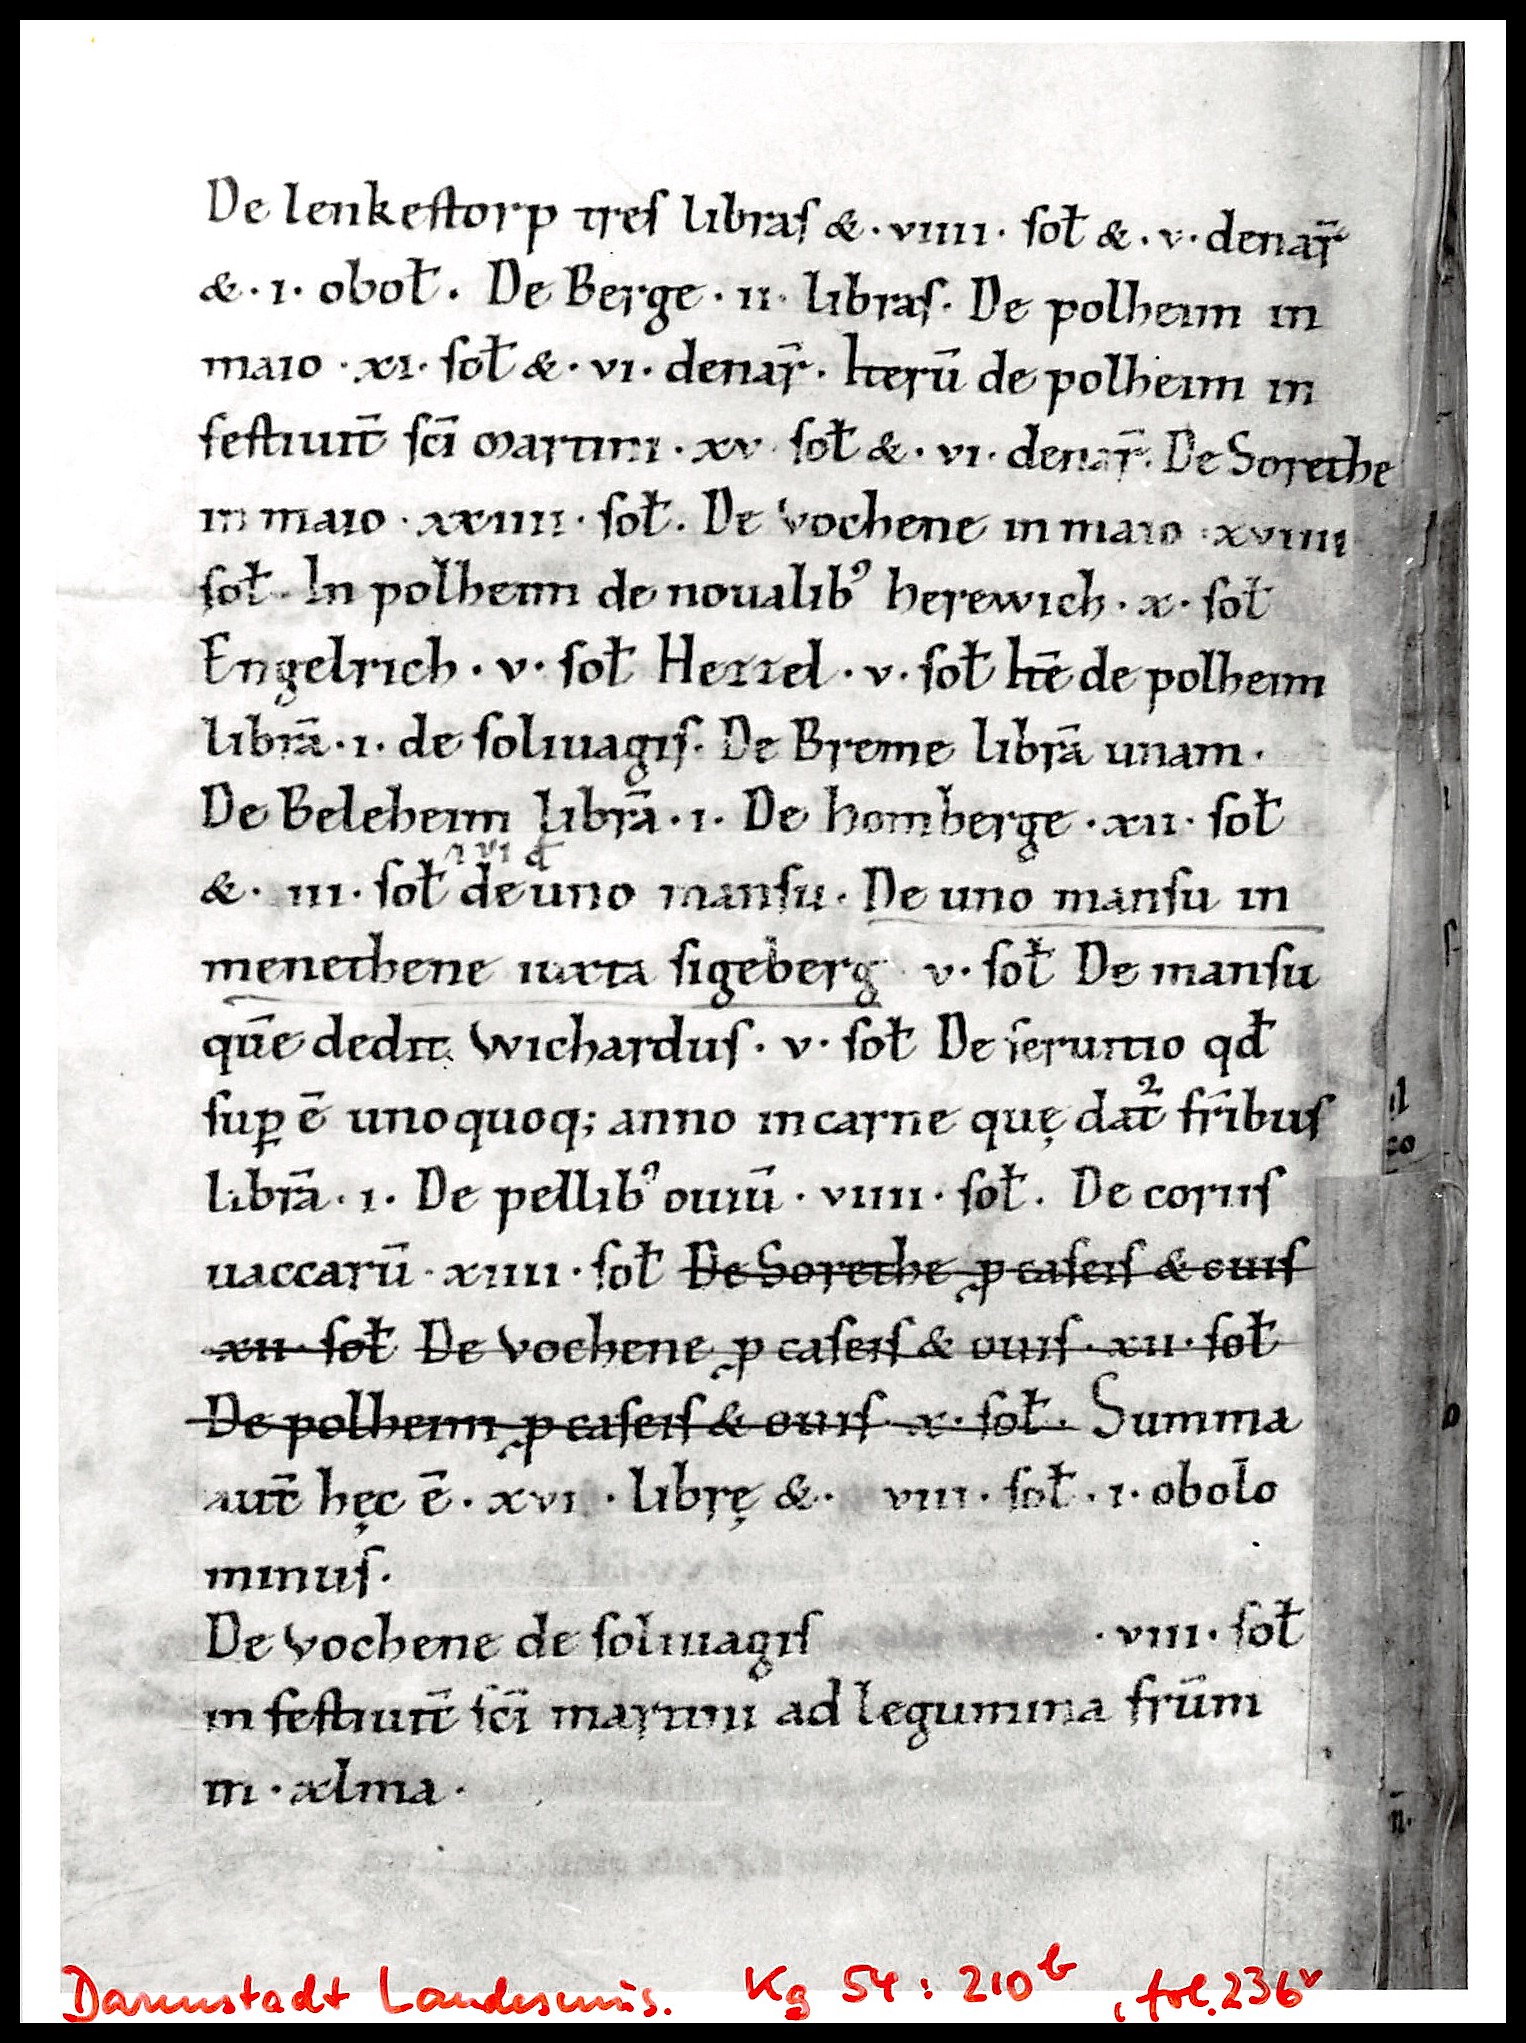 De lenkestorp tres libras &·viiii· sol̄ &·v·denar̄
&·i· obol̄. De Berge·ii· libras. De polheim in
maio·xi·sol̄ &·vi·denar̄. Iterū de polheim in
festiuit̄ sc̄i martini·xv sol̄ &·vi·denar̄. De Sorethe
in maio·xxiiii·sol̄. De vochene in maio·xviiii
sol̄. In polheim de noualibꝰ herewich·x·sol̄
Engelrich·v·sol̄ Hezzel·v·sol̄ Itē de polheim
librā·i·de soliuagis. De Breme librā unam.
De Beleheim librā·i· De homberge·xii·sol̄
& vi d̄
&·iii·sol̄ de uno mansu. De uno mansu in
menethene iuxta sigeberg v·sol̄ De mansu
quē dedit Wichardus·v·sol̄ De seruitio qd̄
suꝑ ē unoquoq; anno in carne quę dat̄ᷣ fr̄ibus
librā·i· De pellibꝰ ouiū·viiii·sol̄. De coriis
uaccarū·xiiii·sol̄ De Sorethe ꝓ caseis & ouis
xii·sol̄ De vochene ꝓ caseis & ouis·xii·sol̄
De polheim ꝓ caseis & ouis·x·sol̄. Summa
aut̄ hęc ē·xvi·librę &· viii·sol̄·i·obolo
minus.
De vochene de soliuagis ·viii·sol̄
in festiuit̄ sc̄i martini ad legumina frūm
in·xlma·
Darmstadt Landesmus. Kg 54:210b, fol. 236v